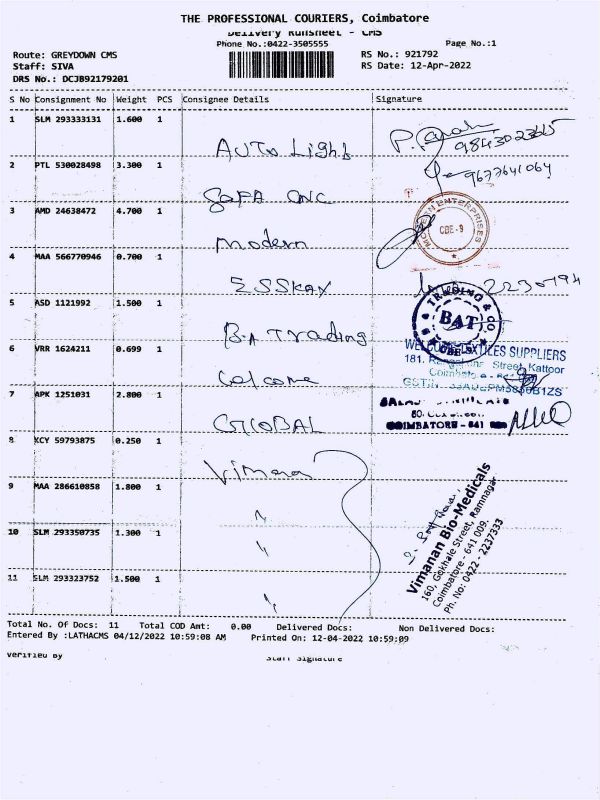 THE PROFESSIONAL COURIERS, Coimbatore
Delivery Runsheet - CMS
Phone No.:0422-3505555
Page No.:1
Route: GREYDOWN CMS
RS No.: 921792
Staff: SIVA
RS Date: 12-Apr-2022
DRS No.: DCJ892179201
S No Consignment No Weight PCS Consignee Details Signature
1 SLM 293333131 1.600 1
AUTO Light
9843023615
2 PTL 530028498 3.300 1
9677641064
SAFA CNC
3 AMD 24638472 4.700 1
ENTERPRISES
CBE-9
Modern
4 MAA 566770946 0.700 1
ESSKAY
2230794
5 ASD 1121992 1.500 1
B.A TRADING & CO
BAT
CBE
B.A Trading
6 VRR 1624211 0.699 1
TEXTILES SUPPLIERS
181, Street, Kattoor
Welcome
7 APK 1251031 2.800 1
GSTIN
COIMBATORE - 641
GLOBAL
8 KCY 59793875 0.250 1
Vimana
9 MAA 286610858 1.800 1
"
10 SLM 293350735 1.300 1
"
11 SLM 293323752 1.500 1
"
Vimanan Bio-Medicals
160, Gokhale Street, Ramnagar
Coimbatore - 641 009.
Ph. No: 0422 - 2237333
Total No. Of Docs: 11 Total COD Amt: 0.00 Delivered Docs: Non Delivered Docs:
Entered By :LATHACMS 04/12/2022 10:59:08 AM Printed On: 12-04-2022 10:59:09
Verified By Staff Signature